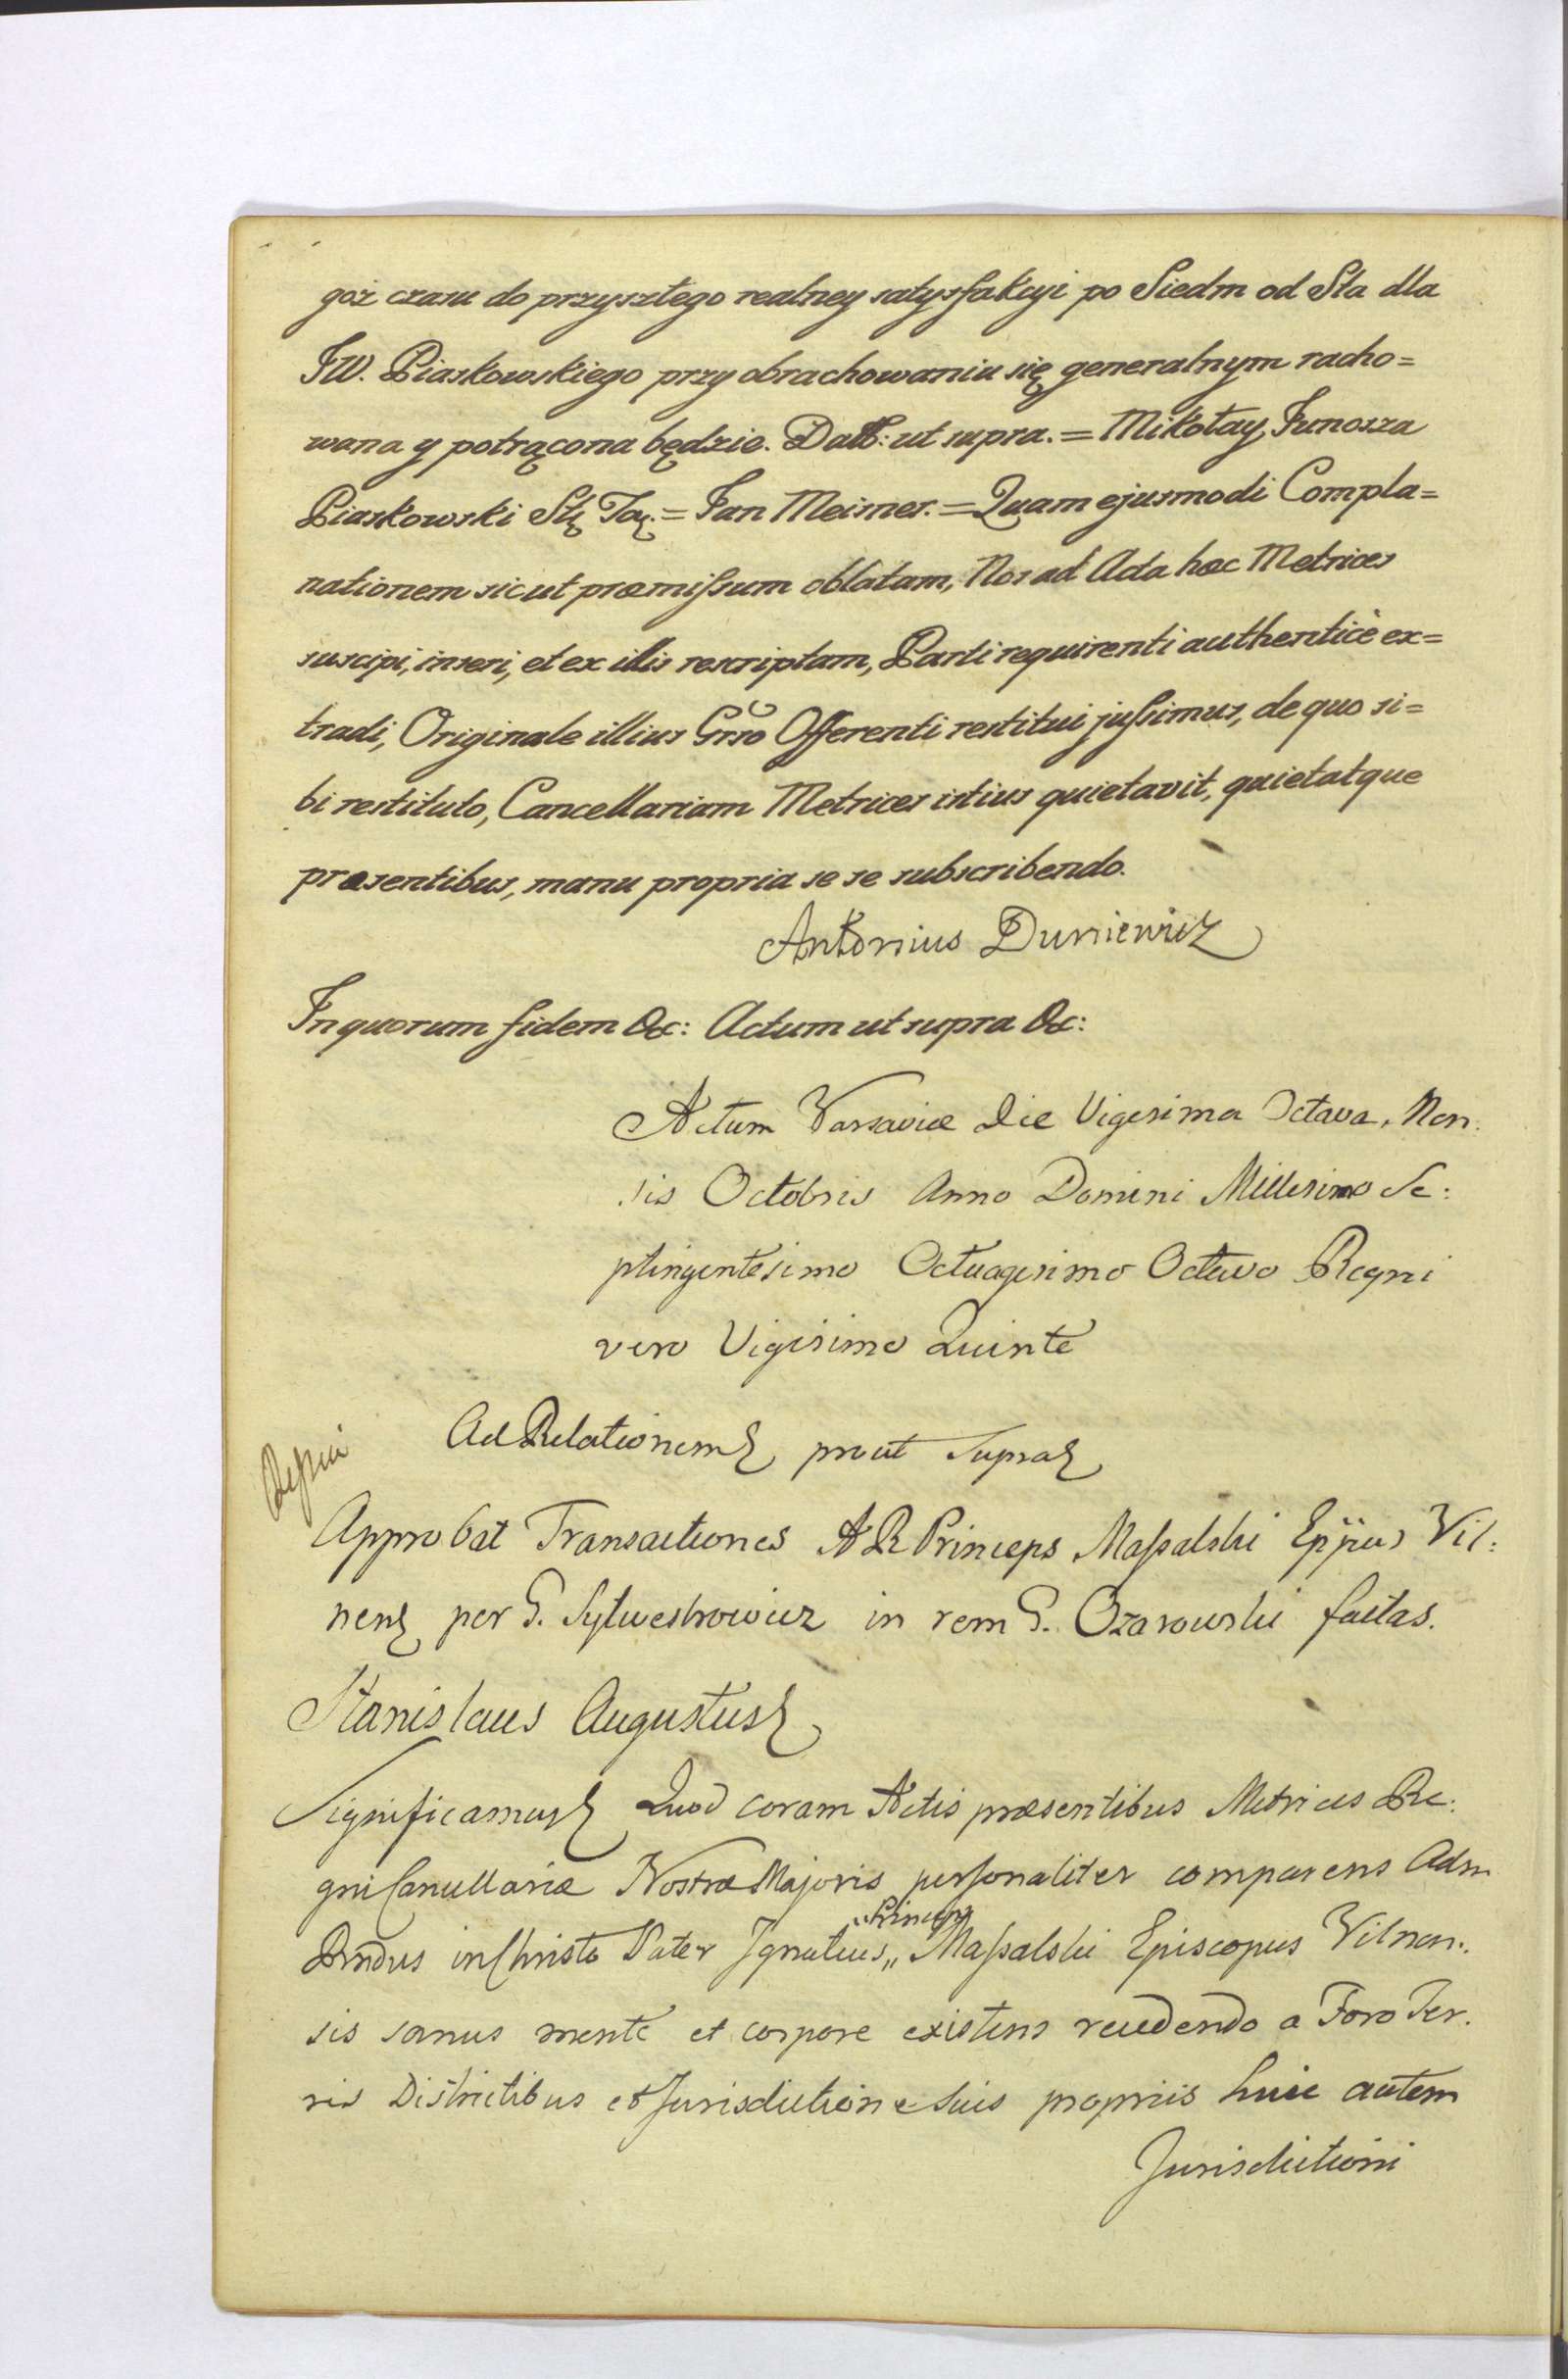 goż czasu do przyszłego realney satysfakcyi po Siedm od Sta dla
JW. Piaskowskiego przy obrachowaniu się generalnym racho=
wana y potrącona będzie. Datt: ut supra. = Mikołay Junosza
Piaskowski = Jan Meisner. = Quam ejusmodi Compla=
nationem sicut præmissum oblatam, Nos ad Acta hæc Metrices
suscipi, inseri, et ex illis rescriptam, Parti requirenti authenticè ex=
tradi, Originale illius Grso Offerenti restitui jussimus, de quo si=
bi restituto, Cancellariam Metrices istius quietavit, quietatque
præsentibus, manu propria se se subscribendo.
Antonius Duniewicz
In quorum fidem &c: Actum ut supra &c:
Actum Varsaviæ Die Vigesima Octava, Men:
sis Octobris Anno Domini Millesimo Se:
ptingentesimo Octuagesimo Octavo Regni
vero Vigesimo Quinto
Ad Relationem prout Supra
Approbat Transactiones A R Princeps Massalski Eppus Vil:
nens per G. Sylwestrowicz in rem G. Ozarowski factas.
Stanislaus Augustus
Significamus Quod coram Actis præsentibus Metrices Re:
gni Cancellariæ Nostræ Majoris personaliter comparens Adm
Rndus in Christo Pater Ignatius „ Princeps „ Massalski Episcopus Vilnen:
sis sanus mente et corpore existens recedendo a Foro Ter:
ris Districtibus et Jurisdictione suis propriis huic autem
Jurisdictioni